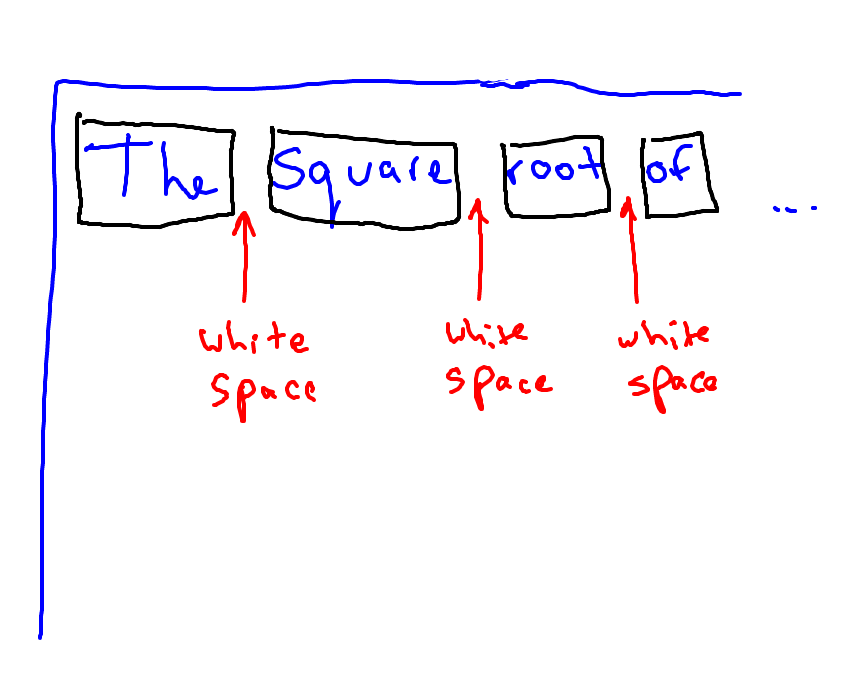 The Square root of ...
white white white
space space space